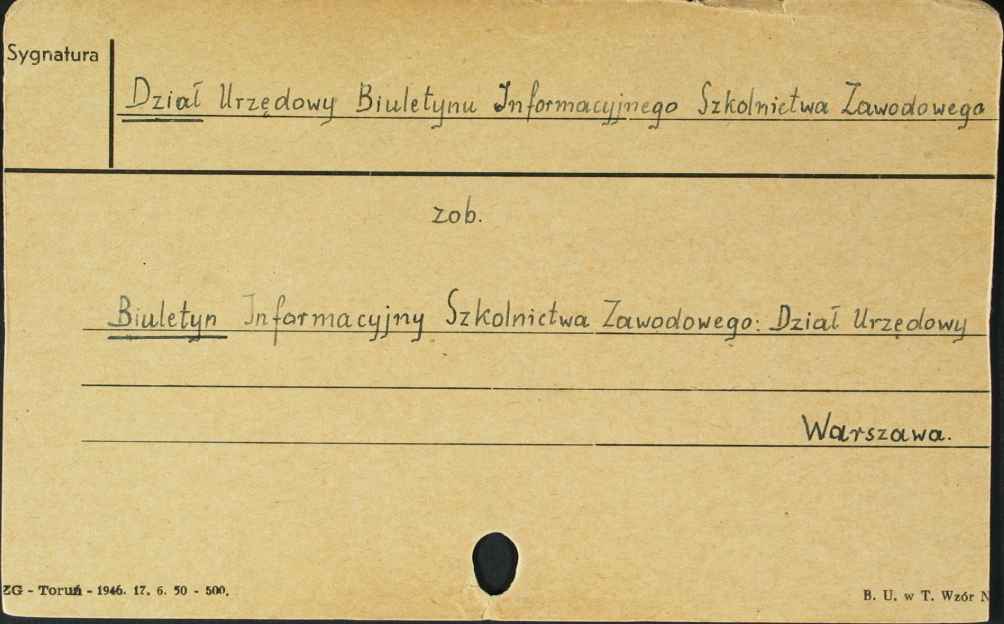 Sygnatura
Dział Urzędowy Biuletynu Informacyjnego Szkolnictwa Zawodowego
zob.
Biuletyn Informacyjny Szkolnictwa Zawodowego: Dział Urzędowy
Warszawa.
ZG - Toruń - 1946. 17. 6. 50 - 500.
B. U. w T. Wzór N